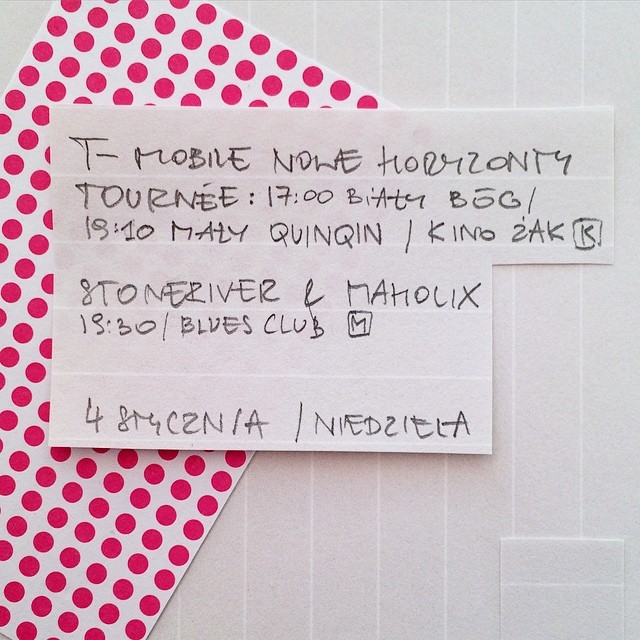 T-MOBILE NOWE HORYZONTY
TOURNÉE: 17:00 BIAŁY BÓG/
19:10 MAŁY QUINQIN / KINO ŻAK K
STONERIVER & MAHOLIX
19:30/BLUES CLUB M
4 STYCZNIA / NIEDZIELA